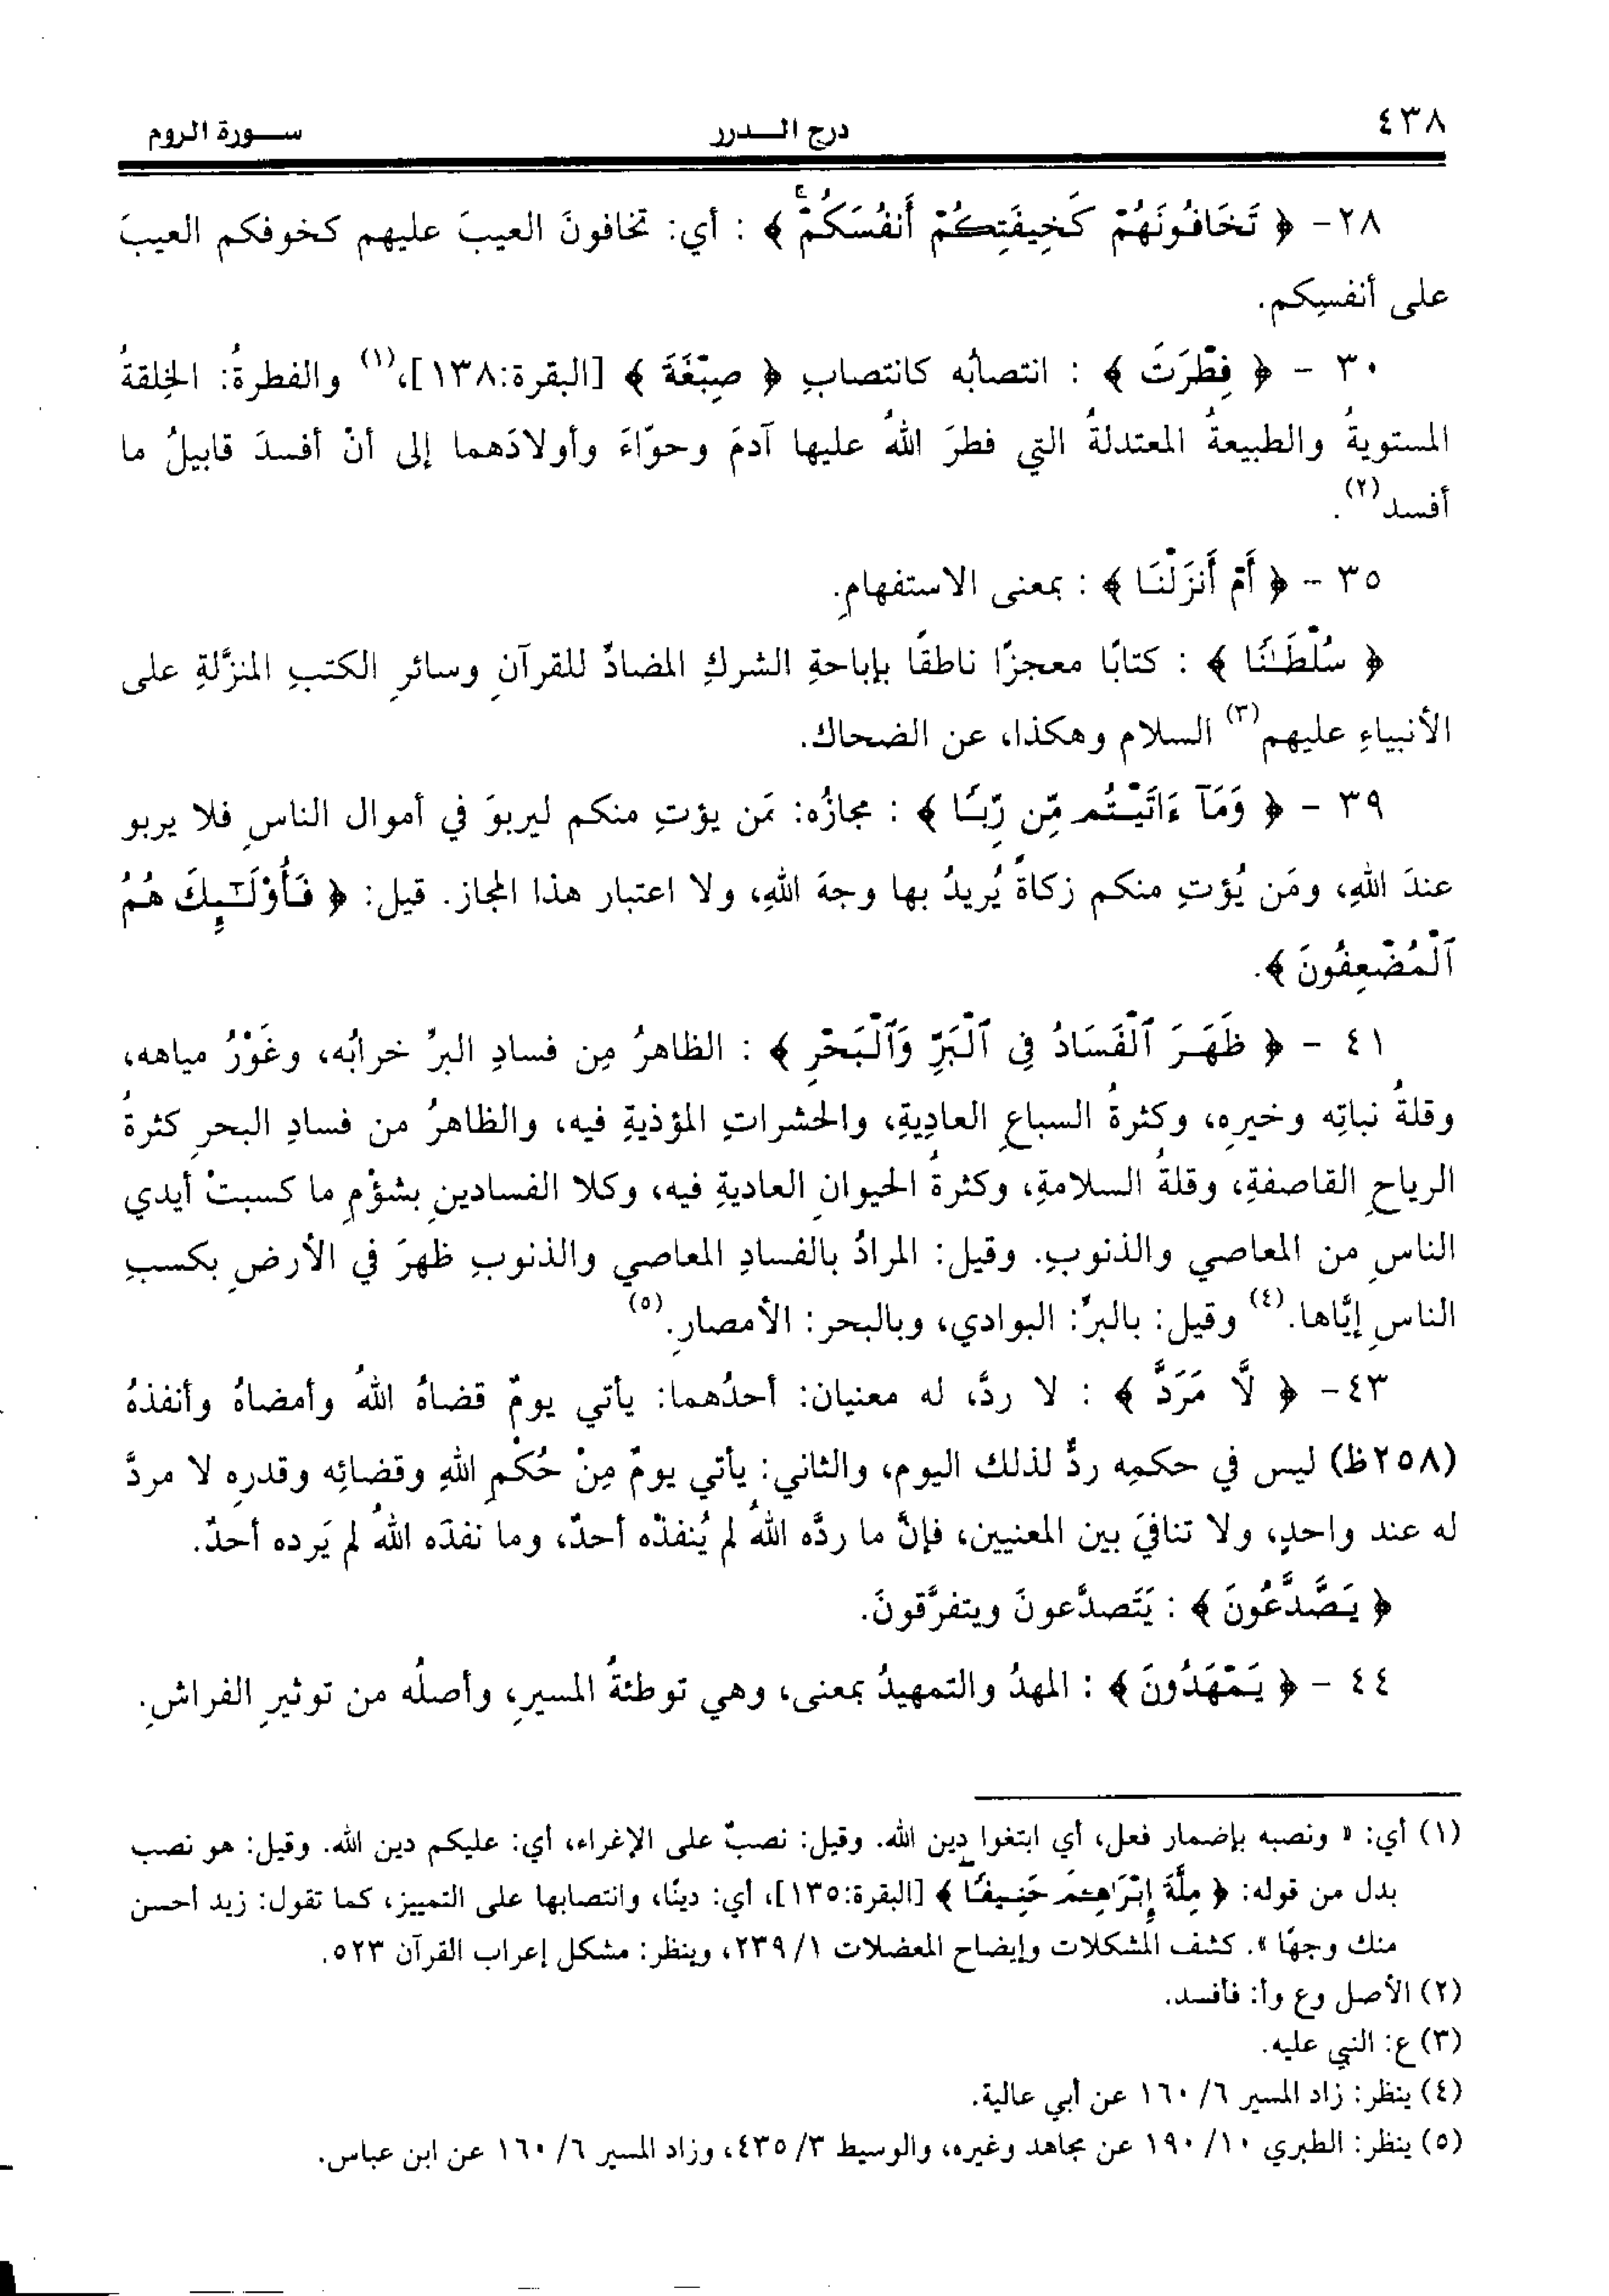 ٤٣٨ درج الـــدرر ســـورة الروم
٢٨- ﴿ تَخَافُونَهُمْ كَخِيفَتِكُمْ أَنفُسَكُمْ ۚ ﴾ : أي: تخافونَ العيبَ عليهم كخوفكم العيبَ
على أنفسِكم.
٣٠ - ﴿ فِطْرَتَ ﴾ : انتصابُه كانتصابِ ﴿ صِبْغَةَ ﴾ [البقرة:١٣٨]،(١) والفطرةُ: الخِلقةُ
المستويةُ والطبيعةُ المعتدلةُ التي فطرَ اللهُ عليها آدمَ وحوّاءَ وأولادَهما إلى أنْ أفسدَ قابيلُ ما
أفسد(٢).
٣٥ - ﴿ أَمْ أَنزَلْنَا ﴾ : بمعنى الاستفهامِ.
﴿ سُلْطَـٰنًا ﴾ : كتابًا معجزًا ناطقًا بإباحةِ الشركِ المضادِّ للقرآنِ وسائرِ الكتبِ المنزَّلةِ على
الأنبياءِ عليهم(٣) السلام وهكذا، عن الضحاك.
٣٩ - ﴿ وَمَآ ءَاتَيْتُم مِّن رِّبًا ﴾ : مجازُه: مَن يؤتِ منكم ليربوَ في أموال الناسِ فلا يربو
عندَ اللهِ، ومَن يُؤتِ منكم زكاةً يُريدُ بها وجهَ اللهِ، ولا اعتبار هذا المجاز. قيل: ﴿ فَأُوْلَـٰٓئِكَ هُمُ
ٱلْمُضْعِفُونَ ﴾.
٤١ - ﴿ ظَهَرَ ٱلْفَسَادُ فِى ٱلْبَرِّ وَٱلْبَحْرِ ﴾ : الظاهرُ مِن فسادِ البرِّ خرابُه، وغَوْرُ مياهه،
وقلةُ نباتِه وخيرِه، وكثرةُ السباعِ العادِيةِ، والحشراتِ المؤذيةِ فيه، والظاهرُ من فسادِ البحرِ كثرةُ
الرياحِ القاصفةِ، وقلةُ السلامةِ، وكثرةُ الحيوانِ العاديةِ فيه، وكلا الفسادينِ بشؤْمِ ما كسبتْ أيدي
الناسِ من المعاصي والذنوبِ. وقيل: المرادُ بالفسادِ المعاصي والذنوبِ ظهرَ في الأرضِ بكسبِ
الناسِ إيَّاها.(٤) وقيل: بالبرِّ: البوادي، وبالبحر: الأمصارِ.(٥)
٤٣- ﴿ لَّا مَرَدَّ ﴾ : لا ردَّ، له معنيان: أحدُهما: يأتي يومٌ قضاهُ اللهُ وأمضاهُ وأنفذهُ
(٢٥٨ظ) ليس في حكمِه ردٌّ لذلك اليوم، والثاني: يأتي يومٌ مِنْ حُكْمِ اللهِ وقضائِه وقدرِه لا مردَّ
له عند واحدٍ، ولا تنافيَ بين المعنيين، فإنَّ ما ردَّه اللهُ لم يُنفذْه أحدٌ، وما نفذَه اللهُ لم يَرده أحدٌ.
﴿ يَصَّدَّعُونَ ﴾ : يَتَصدَّعونَ ويتفرَّقونَ.
٤٤ - ﴿ يَمْهَدُونَ ﴾ : المهدُ والتمهيدُ بمعنى، وهي توطئةُ المسيرِ، وأصلُه من توثيرِ الفراشِ.
(١) أي: « ونصبه بإضمار فعل، أي ابتغوا دين الله. وقيل: نصبٌ على الإغراء، أي: عليكم دين الله. وقيل: هو نصب
بدل من قوله: ﴿ مِلَّةَ إِبْرَٰهِـۧمَ حَنِيفًا ﴾ [البقرة:١٣٥]، أي: دينًا، وانتصابها على التمييز، كما تقول: زيد أحسن
منك وجهًا ». كشف المشكلات وإيضاح المعضلات ١/ ٢٣٩، وينظر: مشكل إعراب القرآن ٥٢٣.
(٢) الأصل وع وأ: فأفسد.
(٣) ع: النبي عليه.
(٤) ينظر: زاد المسير ٦/ ١٦٠ عن أبي عالية.
(٥) ينظر: الطبري ١٠/ ١٩٠ عن مجاهد وغيره، والوسيط ٣/ ٤٣٥، وزاد المسير ٦/ ١٦٠ عن ابن عباس.